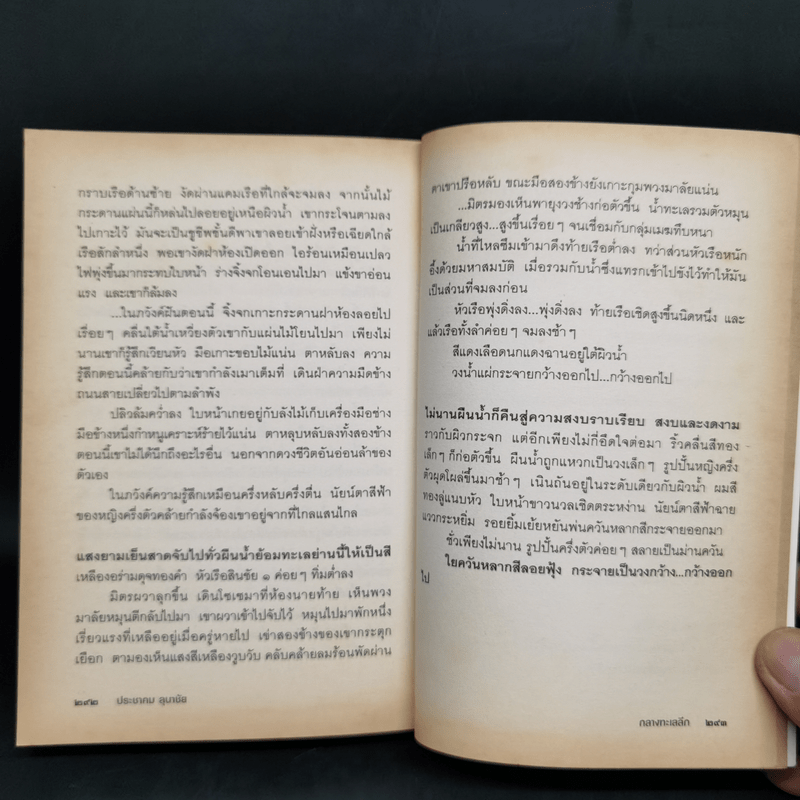 กราบเรือด้านซ้าย งัดผ่านแคมเรือที่ใกล้จะจมลง จากนั้นไม้
กระดานแผ่นนี้ก็หล่นไปลอยอยู่เหนือผิวน้ำ เขากระโจนตามลง
ไปเกาะไว้ มันจะเป็นชูชีพชั้นดีพาเขาลอยเข้าฝั่งหรือเฉียดใกล้
เรือสักลำหนึ่ง พอเขางัดฝาห้องเปิดออก ไอร้อนเหมือนเปลว
ไฟพุ่งขึ้นมากระทบใบหน้า ร่างจึงจกโอนเอนไปมา แข้งขาอ่อน
แรง และเขาก็ล้มลง
...ในภวังค์ฝันตอนนี้ จึงจกเกาะกระดานฝาห้องลอยไป
เรื่อยๆ คลื่นใต้น้ำเหวี่ยงตัวเขากับแผ่นไม้โยนไปมา เพียงไม่
นานเขาก็รู้สึกเวียนหัว มือเกาะขอบไม้แน่น ตาหลับลง ความ
รู้สึกตอนนี้คล้ายกับว่าเขากำลังเมาเต็มที่ เดินฝ่าความมืดข้าง
ถนนสายเปลี่ยวไปตามลำพัง
ปลิวล้มคว่ำลง ใบหน้าเกยอยู่กับลังไม้เก็บเครื่องมือช่าง
มือข้างหนึ่งกำหนูเคราะห์ร้ายไว้แน่น ตาหลุบหลับลงทั้งสองข้าง
ตอนนี้เขาไม่ได้นึกถึงอะไรอื่น นอกจากดวงชีวิตอันอ่อนล้าของ
ตัวเอง
ในภวังค์ความรู้สึกเหมือนครึ่งหลับครึ่งตื่น นัยน์ตาสีฟ้า
ของหญิงครึ่งตัวคล้ายกำลังจ้องเขาอยู่จากที่ไกลแสนไกล
แสงยามเย็นสาดจับไปทั่วผืนน้ำย้อมทะเลย่านนี้ให้เป็นสี
เหลืองอร่ามดุจทองคำ หัวเรือสินชัย ๑ ค่อยๆ ทิ่มต่ำลง
มิตรผวาลุกขึ้น เดินโซเซมาที่ห้องนายท้าย เห็นพวง
มาลัยหมุนตีกลับไปมา เขาผวาเข้าไปจับไว้ หมุนไปมาพักหนึ่ง
เรี่ยวแรงที่เหลืออยู่เมื่อครู่หายไป เข่าสองข้างของเขากระตุก
เยือก ตามองเห็นแสงสีเหลืองวูบวับ คลับคล้ายลมร้อนพัดผ่าน
๒๙๒ ประชาคม ลุนาชัย
ตาเขาปรือหลับ ขณะมือสองข้างยังเกาะกุมพวงมาลัยแน่น
...มิตรมองเห็นพายุงวงช้างก่อตัวขึ้น น้ำทะเลรวมตัวหมุน
เป็นเกลียวสูง...สูงขึ้นเรื่อยๆ จนเชื่อมกับกลุ่มเมฆทึบหนา
น้ำที่ไหลซึมเข้ามาดึงท้ายเรือต่ำลง ทว่าส่วนหัวเรือหนัก
อึ้งด้วยมหาสมบัติ เมื่อรวมกับน้ำซึ่งแทรกเข้าไปขังไว้ทำให้มัน
เป็นส่วนที่จมลงก่อน
หัวเรือพุ่งดิ่งลง...พุ่งดิ่งลง ท้ายเรือเชิดสูงขึ้นนิดหนึ่ง และ
แล้วเรือทั้งลำค่อยๆ จมลงช้าๆ
สีแดงเลือดนกแดงฉานอยู่ใต้ผิวน้ำ
วงน้ำแผ่กระจายกว้างออกไป...กว้างออกไป
ไม่นานผืนน้ำก็คืนสู่ความสงบราบเรียบ สงบและงดงาม
ราวกับผิวกระจก แต่อีกเพียงไม่กี่อึดใจต่อมา ริ้วคลื่นสีทอง
เล็กๆ ก็ก่อตัวขึ้น ผืนน้ำถูกแหวกเป็นวงเล็กๆ รูปปั้นหญิงครึ่ง
ตัวผุดโผล่ขึ้นมาช้าๆ เนินถันอยู่ในระดับเดียวกับผิวน้ำ ผมสี
ทองลู่แนบหัว ใบหน้าขาวนวลเชิดตระหง่าน นัยน์ตาสีฟ้าฉาย
แวววกระหยิ่ม รอยยิ้มเย้ยหยันพ่นควันหลากสีกระจายออกมา
ชั่วเพียงไม่นาน รูปปั้นครึ่งตัวค่อยๆ สลายเป็นม่านควัน
ใยควันหลากสีลอยฟุ้ง กระจายเป็นวงกว้าง...กว้างออก
ไป
กลางทะเลลึก ๒๙๓